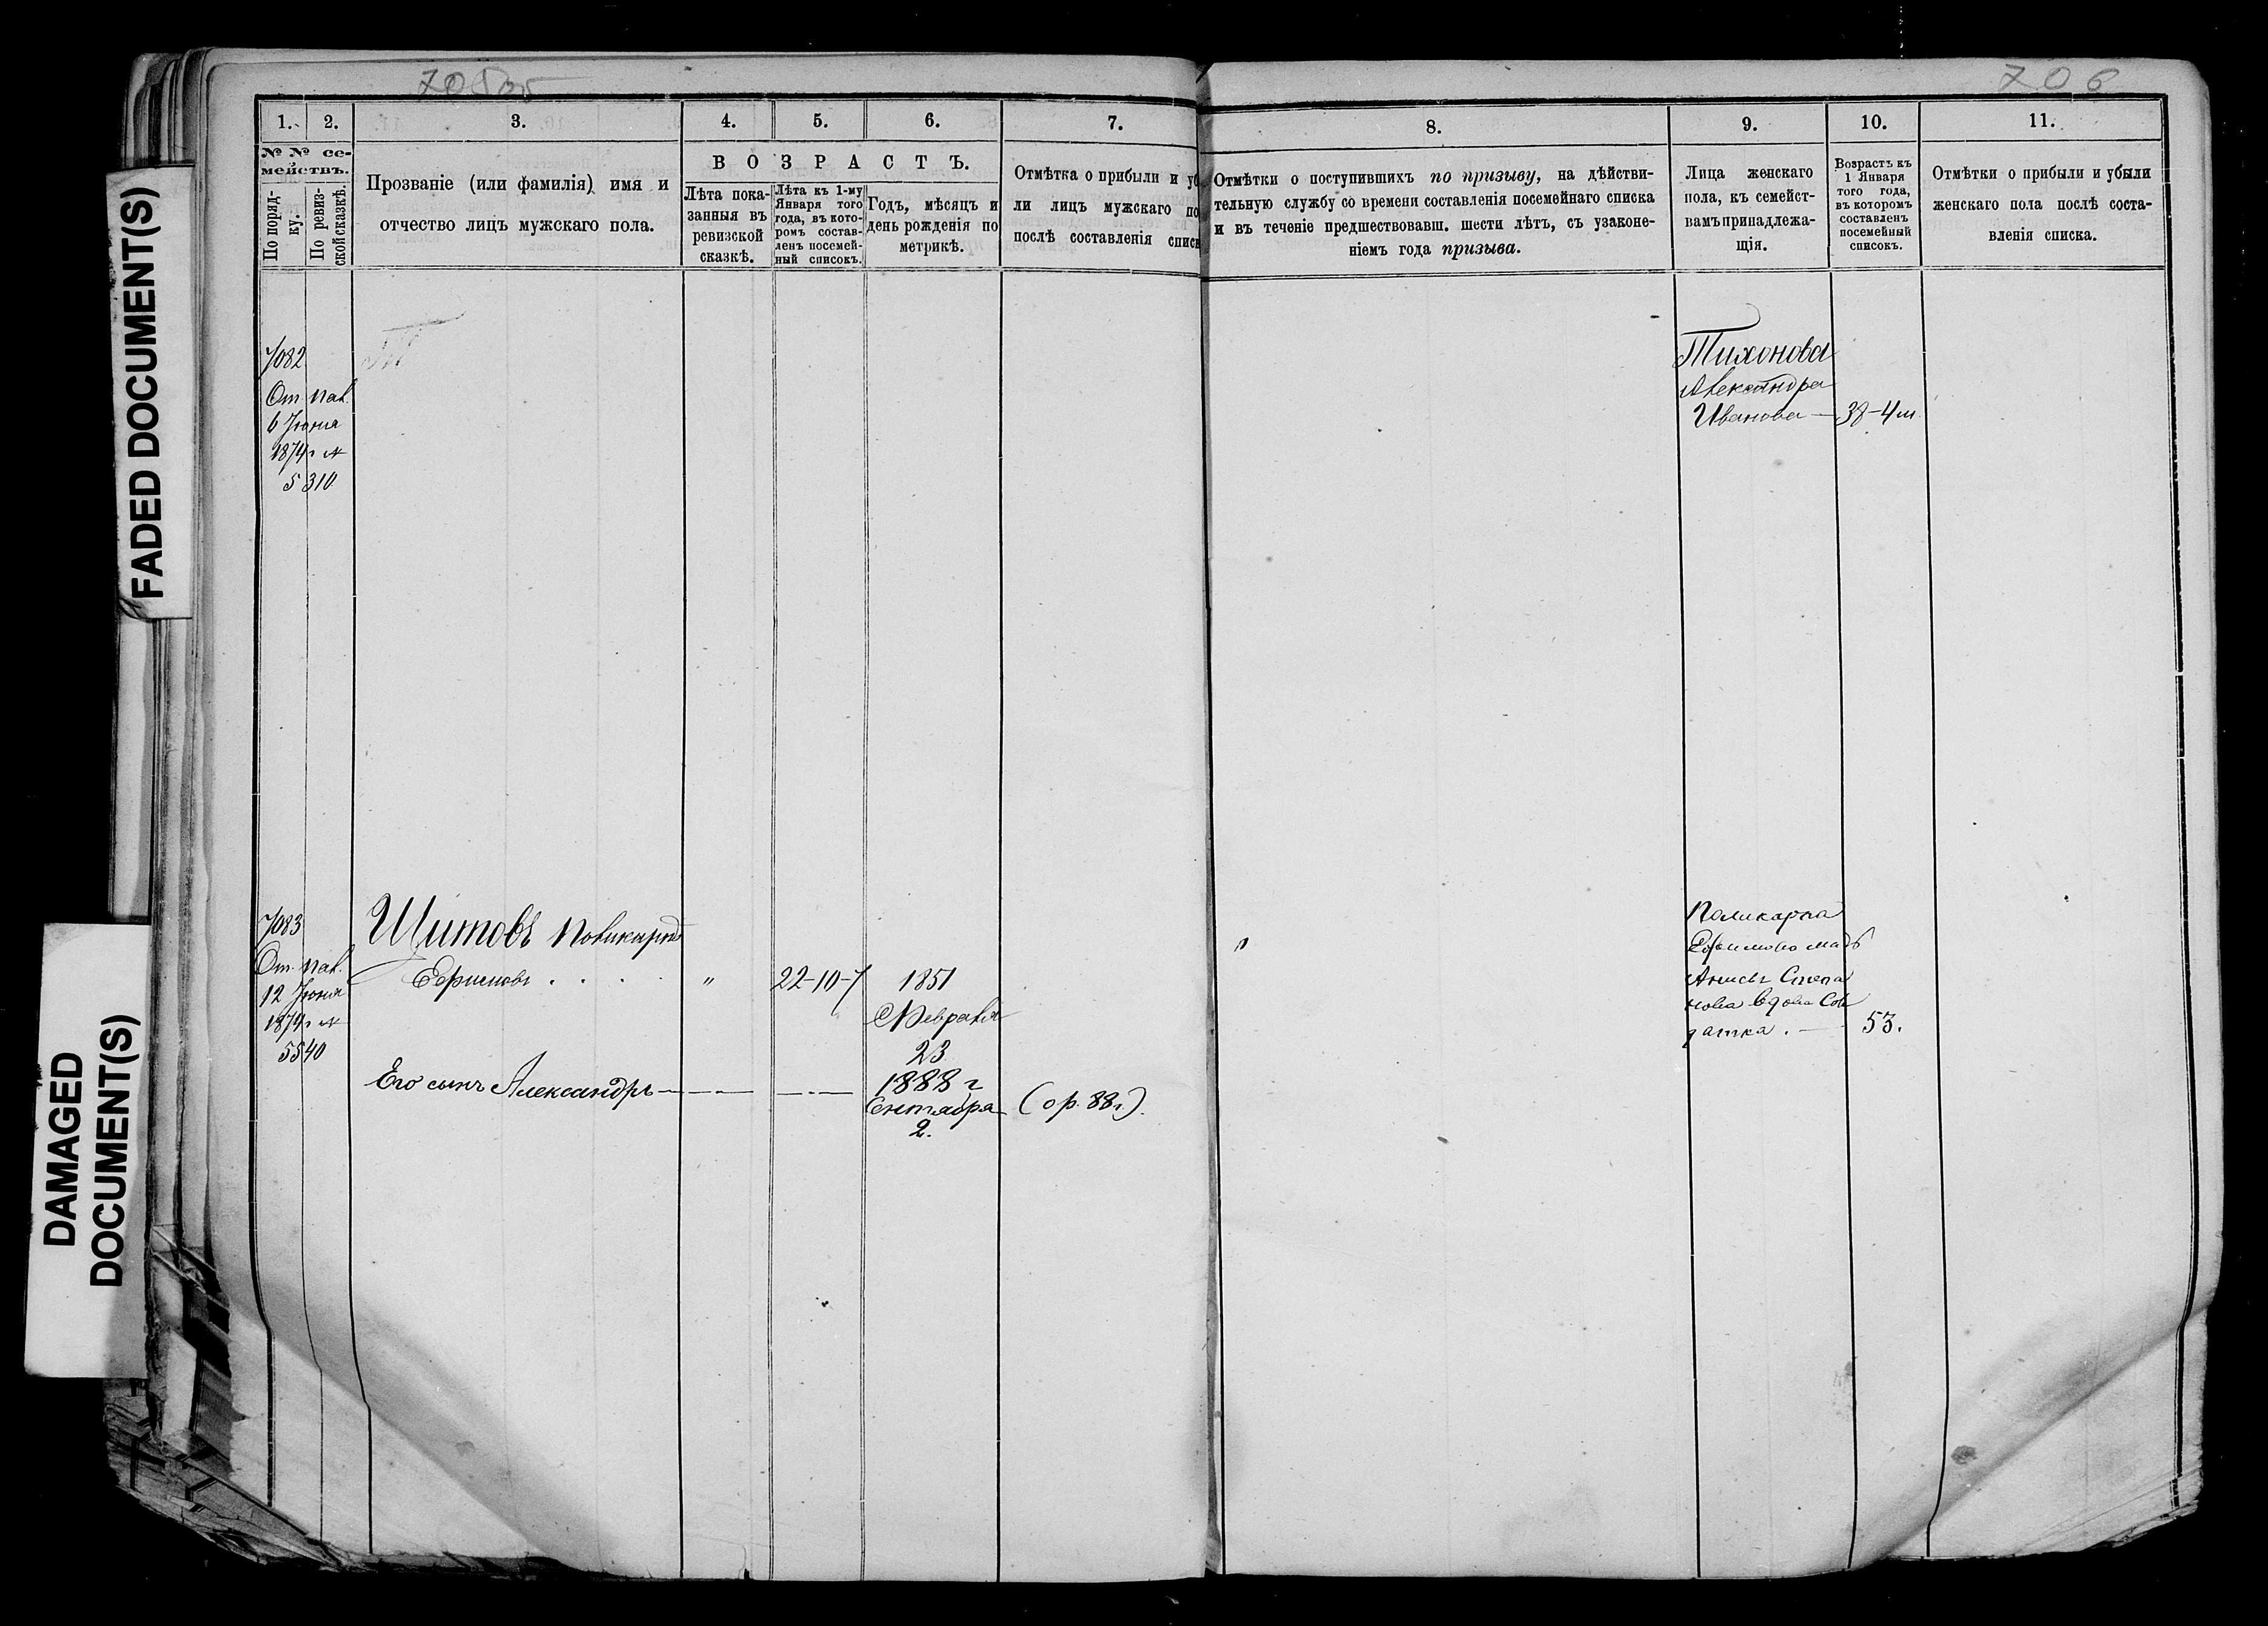 70806
706
1. 2. 3. 4. 5. 6. 7.
№ № се-
мействъ.
По поряд-
ку.
По ревиз-
ской сказкѣ.
Прозваніе (или фамилія) имя и
отчество лицъ мужскаго пола.
ВОЗРАСТЪ.
Лѣта пока-
занныя въ
ревизской
сказкѣ.
Лѣта къ 1-му
Января того
года, въ кото-
ромъ состав-
ленъ посемей-
ный списокъ.
Годъ, мѣсяцъ и
день рожденія по
метрикѣ.
Отмѣтка о прибыли и уб
ли лицъ мужскаго по
послѣ составленія списк
8. 9. 10. 11.
Отмѣтки о поступившихъ по призыву, на дѣйстви-
тельную службу со времени составленія посемейнаго списка
и въ теченіе предшествовавш. шести лѣтъ, съ узаконе-
ніемъ года призыва.
Лица женскаго
пола, къ семейст-
вамъ принадлежа-
щія.
Возрастъ къ
1 Января
того года,
въ которомъ
составленъ
посемейный
списокъ.
Отмѣтки о прибыли и убыли
женскаго пола послѣ соста-
вленія списка.
7082
От пал.
6 Іюня
1874 г №
5310
Тихонова
Александра
Иванова — 38-4 м
7083
От пал.
12 Іюня
1874 г №
5540
Шитовъ Поликарпъ
Ефимовъ . . . . " 22-10-7 1851
Февраля
23
Его сынъ Александръ — — — — — 1888 г
Сентября (ор. 88 г).
2.
"
Поликарпа
Ефимова мать
Анисья Степа
нова вдова Сол
датка . — 53.
FADED DOCUMENT(S)
DAMAGED
DOCUMENT(S)